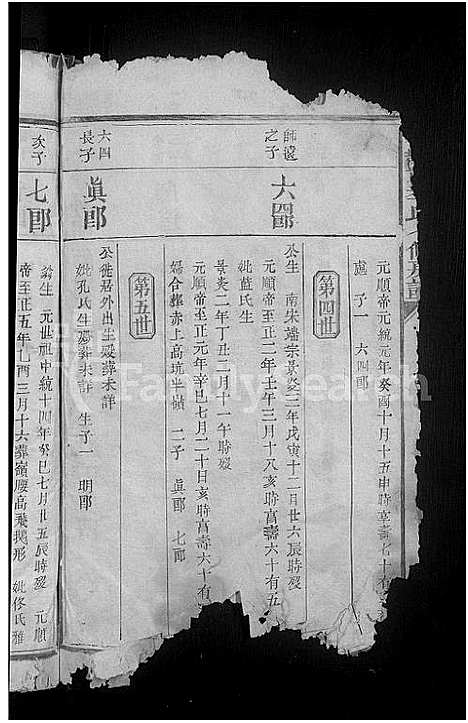 元順帝元統元年癸酉十月十五申時享壽七十有
處 子一 六四郎
第四世
師遠之子
六四郎
公生 南宋端宗景炎三年戊寅十二月廿六辰時殁
元順帝至正二年壬午三月十八亥時亯壽六十有五
妣藍氏生
景炎二年丁丑二月十一午時殁
元順帝至正元年辛巳七月二十日亥時亯壽六十有
婦合葬赤上高坑半嶺 二子 眞郎 七郎
第五世
六四長子
眞郎
公徙居外出生殁葬未詳
妣孔氏生殁葬未詳 生子一 明郎
次子
七郎
公生 元世祖中統十四年癸巳七月廿五辰時殁 元順
帝至正五年乙酉三月十六葬嶺腰高飛鵝形 妣佟氏雅
FamilySearch